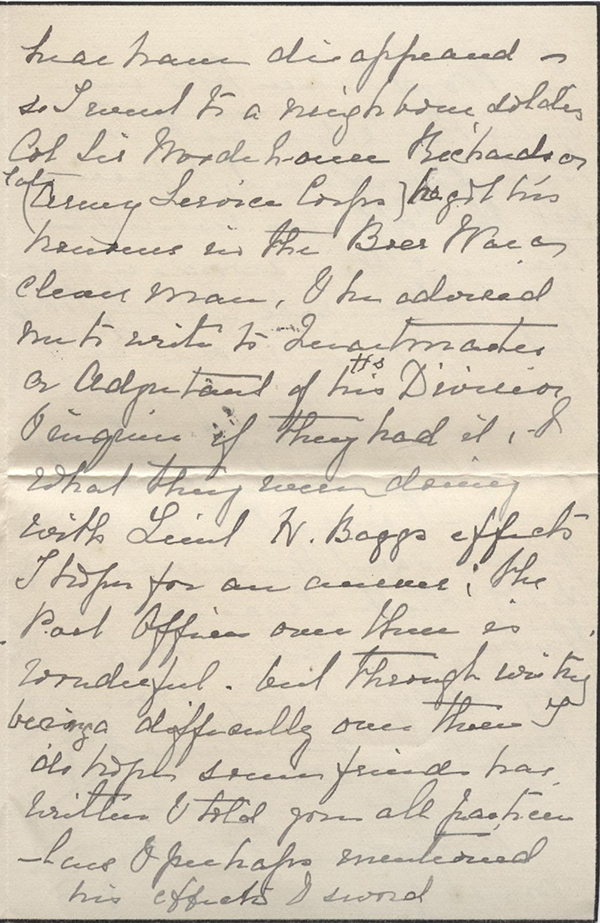 disappeared -
so I went to a neighbour soldier
Col Sir Wodehouse Richardson
(late Army Service Corps) he got his
honours in the Boer War a
clean man, & he advised
me to write to Quartermaster
or Adjutant of his Division
& inquire if they had it, &
what they were doing
with Lieut H. Baggs effects
I hope for an answer; the
Post Office over there is
wonderful. but through writing
being a difficulty over there I
do hope some friend has
written & told you all particu
-lars & perhaps mentioned
his effects & sword